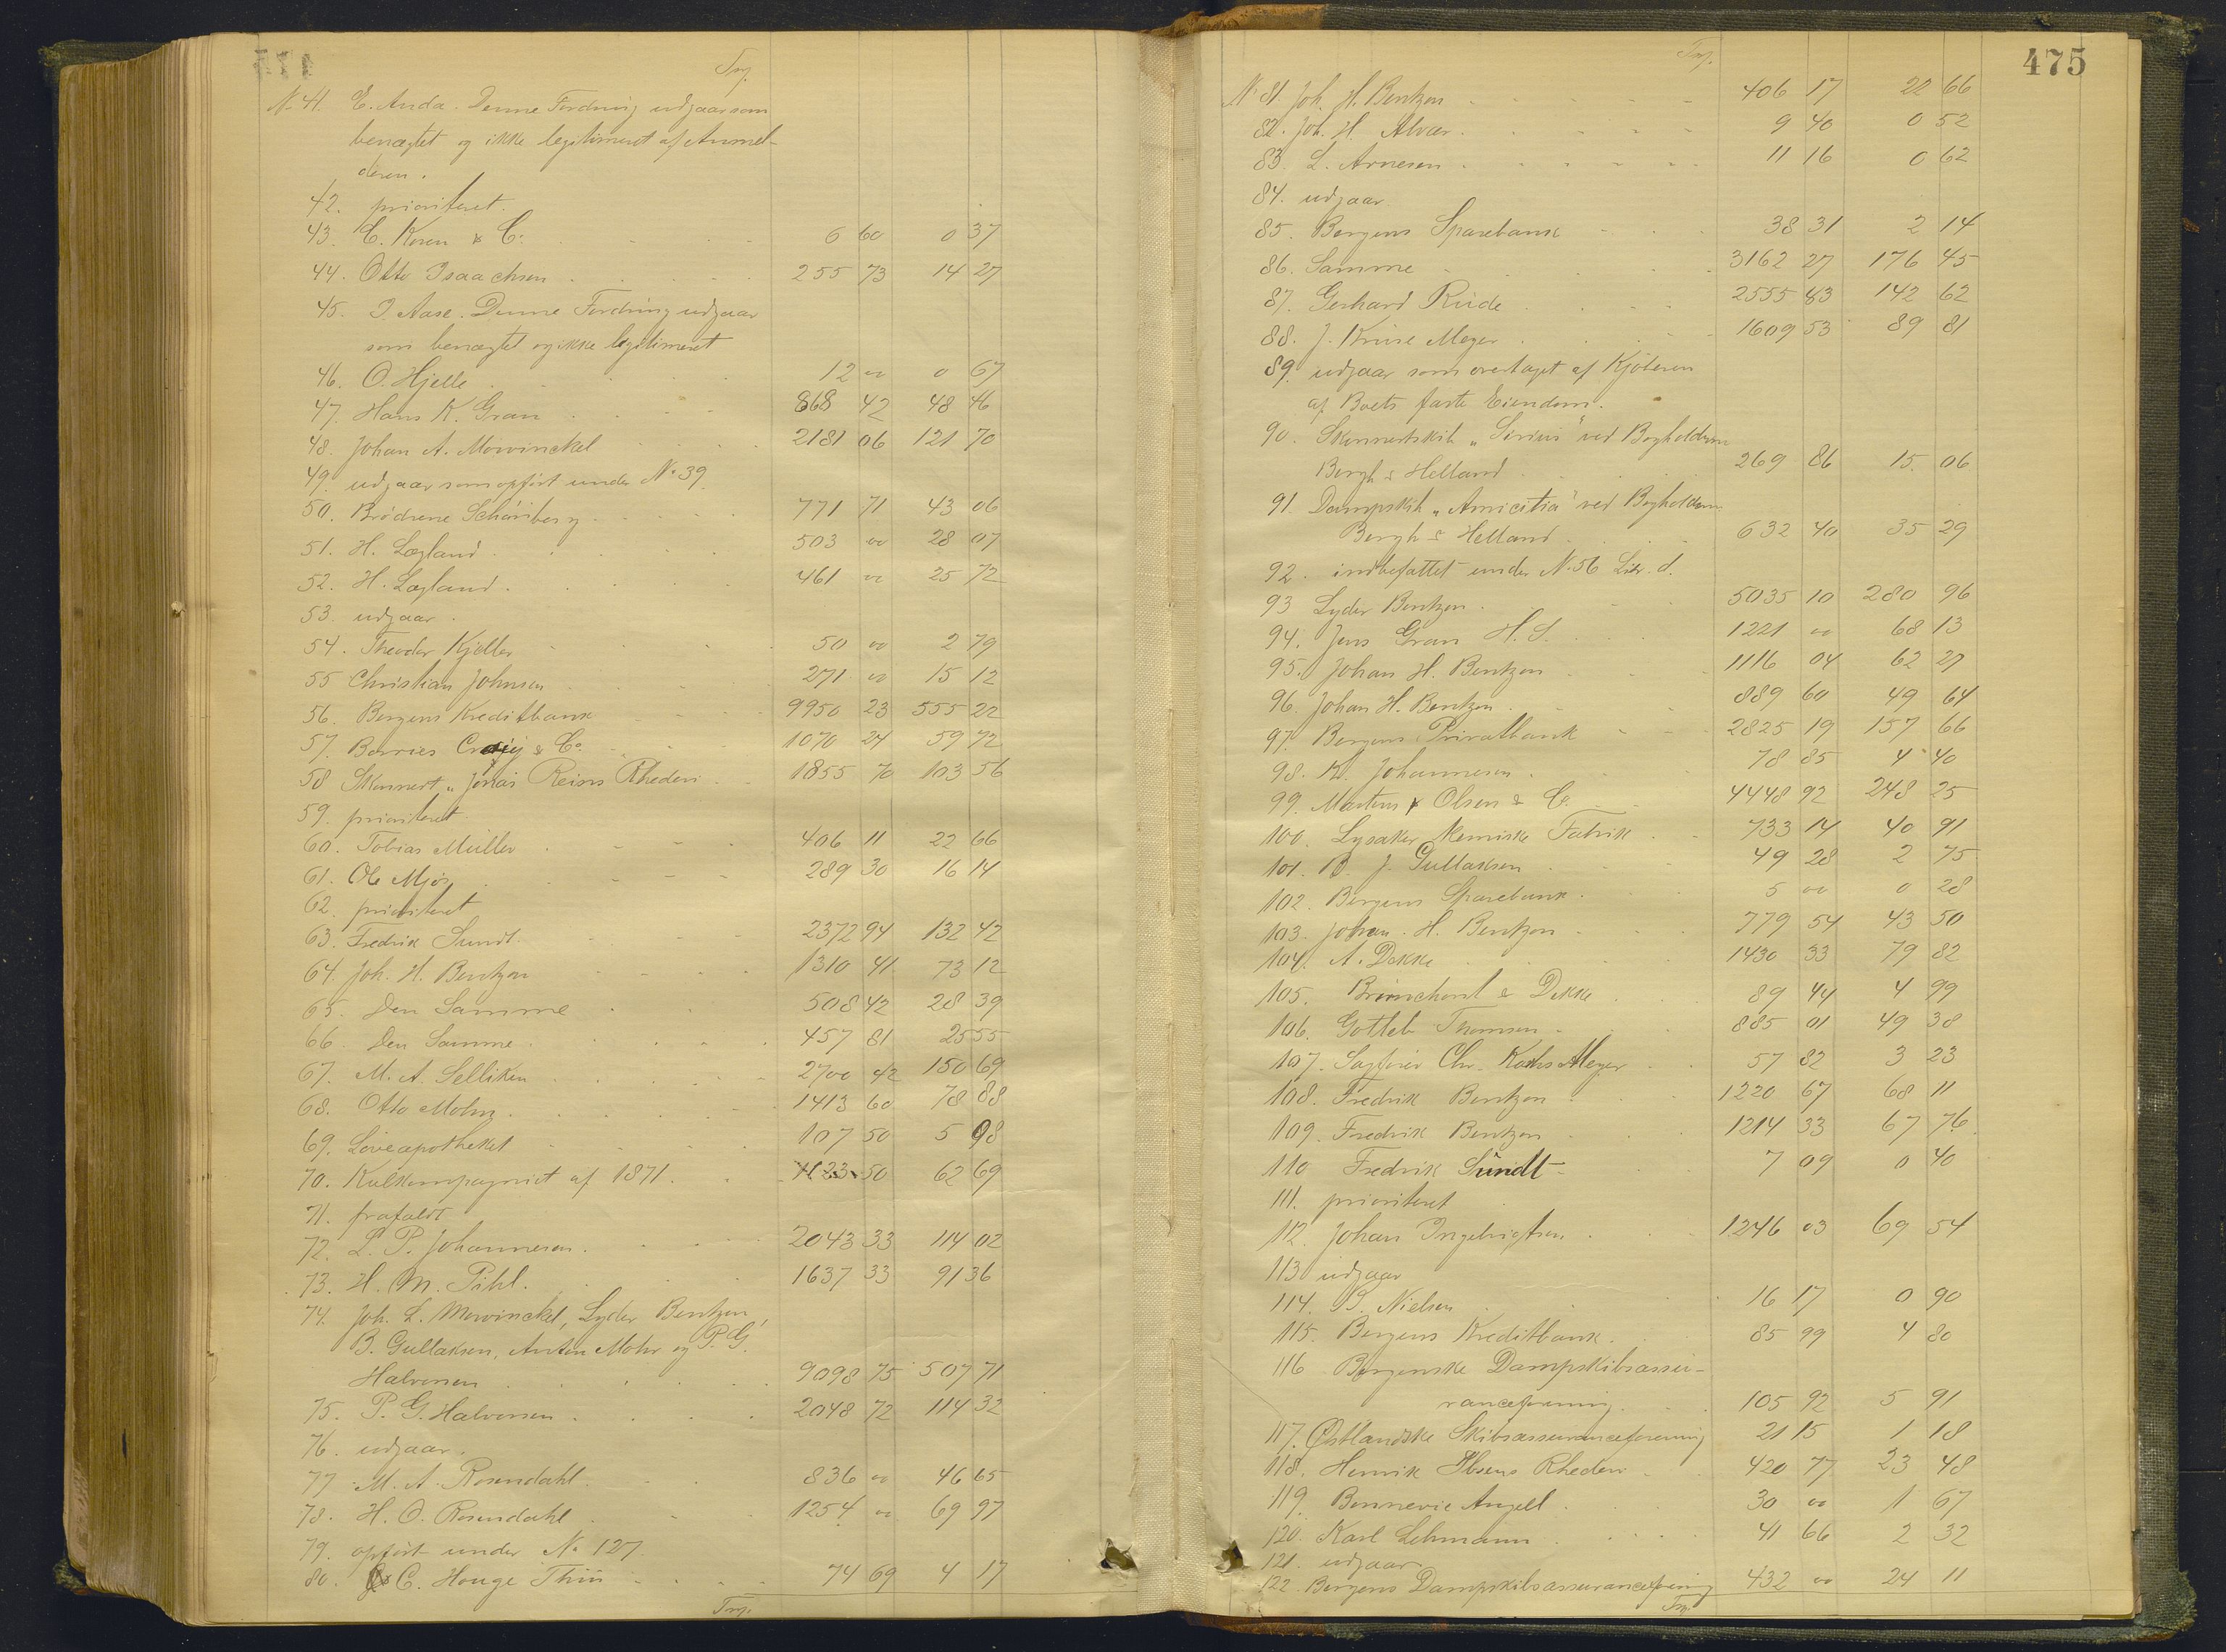 Trp.
No 41. E. Anda. Denne Fordring udgaar som
benægtet og ikke legitimeret af Anmel-
deren.
42. prioriteret.
43. C. Koren & Co. 6 60 0 37
44. Otto Isaachsen 255 73 14 27
45. I. Aase. Denne Fordring udgaar
som benægtet og ikke legitimeret
46. O. Hjelle 12 00 0 67
47. Hans K. Gran 868 42 48 46
48. Johan A. Mowinckel 2181 06 121 70
49. udgaar som opført under No 39.
50. Brødrene Schönberg 771 71 43 06
51. H. Lægland 503 00 28 07
52. H. Lægland 461 00 25 72
53. udgaar.
54. Theodor Kjeller 50 00 2 79
55 Christian Johnsen 271 00 15 12
56. Bergens Kreditbank 9950 23 555 22
57. Barries Craig & Co 1070 24 59 72
58 Skonnert „Jonas Reins Rhederi 1855 70 103 56
59. prioriteret
60. Tobias Müller 406 11 22 66
61. Ole Mjøs 289 30 16 14
62. prioriteret
63. Fredrik Sundt 2372 94 132 42
64. Joh. H. Bentzon 1310 41 73 12
65. Den Samme 508 42 28 39
66. Den Samme 457 81 25 55
67. M. A. Selliken 2700 42 150 69
68. Otto Mohn 1413 60 78 88
69. Løveapotheket 107 50 5 98
70. Kulkompagniet af 1871. 1123 50 62 69
71. frafaldt
72. L. P. Johannesen. 2043 33 114 02
73. H. M. Pihl. 1637 33 91 36
74. Joh. L. Mowinckel, Lyder Bentzon,
B. Gullaksen, Anton Mohr og P. G.
Halvorsen 9098 75 507 71
75. P. G. Halvorsen 2048 72 114 32
76. udgaar.
77 M. A. Rosendahl 836 00 46 65
78. H. O. Rosendahl 1254 00 69 97
79. opført under No 127.
80. C. Houge Thiis 74 69 4 17
Trp.
475
Trp.
No 81. Joh. H. Bentzon 406 17 22 66
82. Joh. H. Alvær 9 40 0 52
83. L. Arnesen 11 16 0 62
84. udgaar
85. Bergens Sparebank 38 31 2 14
86. Samme 3162 27 176 45
87. Gerhard Rüde 2555 83 142 62
88. J. Krüse Meyer 1609 53 89 81
89. udgaar som overtaget af Kjøberen
af Boets faste Eiendom.
90. Skonnertskib „Sirius" ved Bogholderne
Bergh & Helland 269 86 15 06
91. Dampskib „Amicitia" ved Bogholderne
Bergh & Helland 632 40 35 29
92. indbefattet under No 56 Litr. d.
93 Lyder Bentzon 5035 10 280 96
94. Jens Gran H. S. 1221 00 68 13
95. Johan H. Bentzon 1116 04 62 27
96. Johan H. Bentzon 889 60 49 64
97. Bergens Privatbank 2825 19 157 66
98. K. Johannesen 78 85 4 40
99. Martens & Olsen & Co. 4448 92 248 25
100. Lysaker kemiske Fabrik 733 14 40 91
101. B. J. Gullaksen 49 28 2 75
102. Bergens Sparebank 5 00 0 28
103. Johan. H. Bentzon 779 54 43 50
104. A. Dekke 1430 33 79 82
105. Brunchorst & Dekke 89 44 4 99
106. Gottleb Thomsen 885 01 49 38
107. Sagfører Chr. Kochs Meyer 57 82 3 23
108. Fredrik Bentzon 1220 67 68 11
109. Fredrik Bentzon 1214 33 67 76
110 Fredrik Sundt 7 09 0 40
111. prioriteret
112. Johan Ingebrigtsen 1246 03 69 54
113 udgaar
114. B. Nielsen 16 17 0 90
115. Bergens Kreditbank. 85 99 4 80
116 Bergenske Dampskibsassu-
ranceforening 105 92 5 91
117. Østlandske Skibsassuranceforening 21 15 1 18
118. Henrik Ibsens Rhederi 420 77 23 48
119. Bonnevie Angell 30 00 1 67
120. Karl Lehmann 41 66 2 32
121. udgaar
122. Bergens Dampskibsassuranceforening 432 00 24 11
Trp.